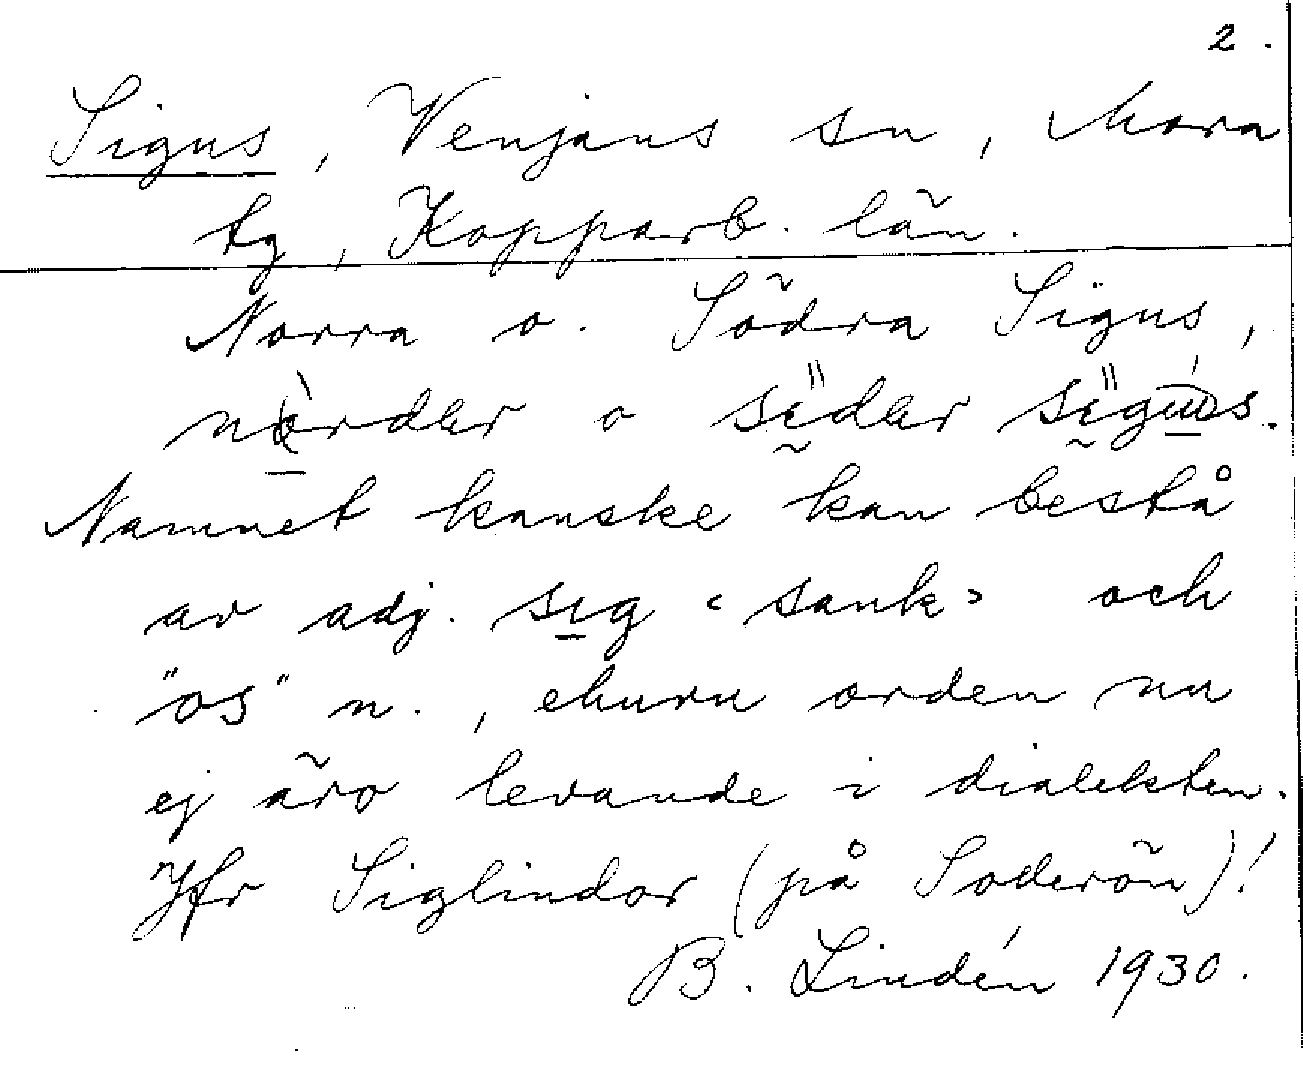 2.
Sigus, Venjans sn, Mora
tg, Kopparb. län.
Norra o. Södra Sigus,
o
Namnet kanske kan bestå
av adj. sig ‹sank› och
"os" n., ehuru orden nu
ej äro levande i dialekten.
Jfr Siglindor (på Soderön)!
B. Lindén 1930.